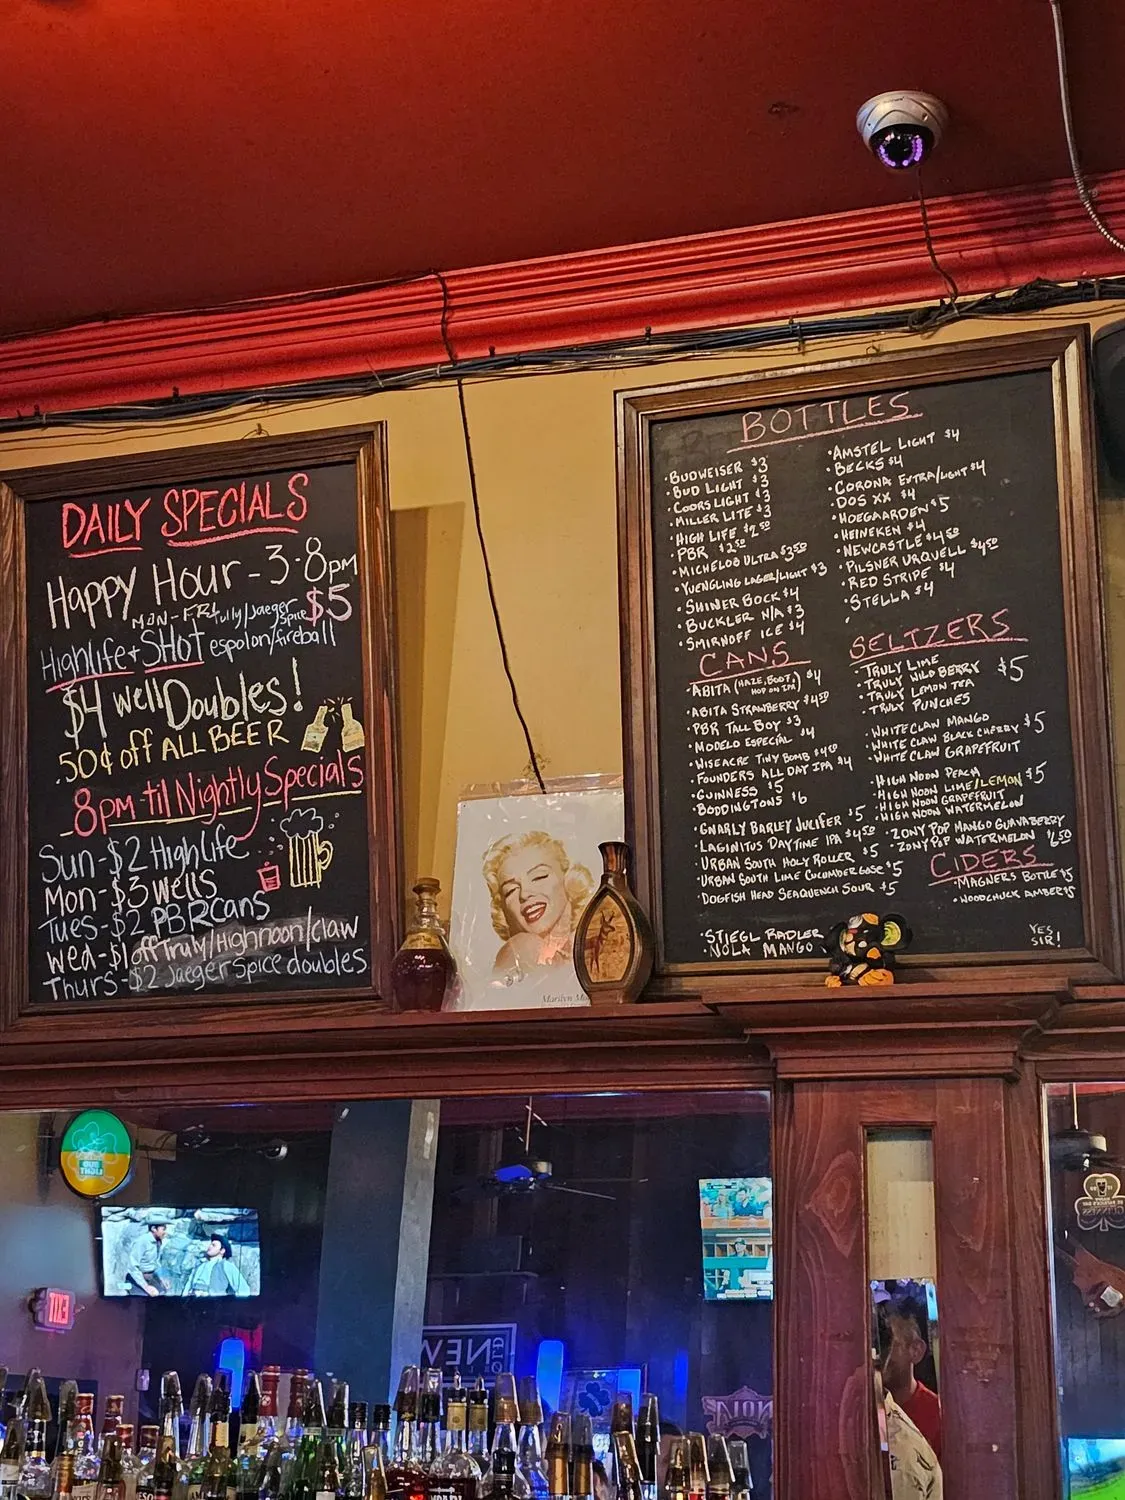 DAILY SPECIALS
Happy Hour - 3-8pm
MON-FRI
Tully/Jaeger Spice $5
Highlife + SHOT espolon/fireball
$4 well Doubles!
.50¢ off ALL BEER
8pm-til Nightly Specials
Sun-$2 High Life
Mon-$3 wells
Tues-$2 PBR cans
Wed-$1 off Truly/Highnoon/Claw
Thurs-$2 Jaeger Spice doubles
BOTTLES
· BUDWEISER $3
· BUD LIGHT $3
· COORS LIGHT $3
· MILLER LITE $3
· HIGH LIFE $2.50
· PBR $2.50
· MICHELOB ULTRA $3.50
· YUENGLING LAGER/LIGHT $3
· SHINER BOCK $4
· BUCKLER N/A $3
· SMIRNOFF ICE $4
· AMSTEL LIGHT $4
· BECKS $4
· CORONA EXTRA/LIGHT $4
· DOS XX $4
· HOEGAARDEN $5
· HEINEKEN $4
· NEWCASTLE $4.50
· PILSNER URQUELL $4.50
· RED STRIPE $4
· STELLA $4
CANS
· ABITA (HAZE, BOOT, HOP ON IPA) $4
· ABITA STRAWBERRY $4.50
· PBR TALL BOY $3
· MODELO ESPECIAL $4
· WISEACRE TINY BOMB
· FOUNDERS ALL DAY IPA $4
· GUINNESS $5
· BODDINGTONS $6
· GNARLY BARLEY JUCIFER $5
· LAGINITUS DAYTIME IPA $4.50
· URBAN SOUTH HOLY ROLLER $5
· URBAN SOUTH LIME CUCUMBER GOSE $5
· DOGFISH HEAD SEAQUENCH SOUR $5
· STIEGL RADLER
· NOLA MANGO
SELTZERS
· TRULY LIME
· TRULY WILD BERRY $5
· TRULY LEMON TEA
· TRULY PUNCHES
· WHITE CLAW MANGO
· WHITE CLAW BLACK CHERRY $5
· WHITE CLAW GRAPEFRUIT
· HIGH NOON PEACH
· HIGH NOON LIME/LEMON $5
· HIGH NOON GRAPEFRUIT
· HIGH NOON WATERMELON
· ZONY POP MANGO GUAVABERRY
· ZONY POP WATERMELON $6.50
CIDERS
· MAGNERS BOTTLE $5
· WOODCHUCK AMBER $5
YES SIR!
Marilyn
BUD LIGHT
EXIT
NEW
OLD
NOLA